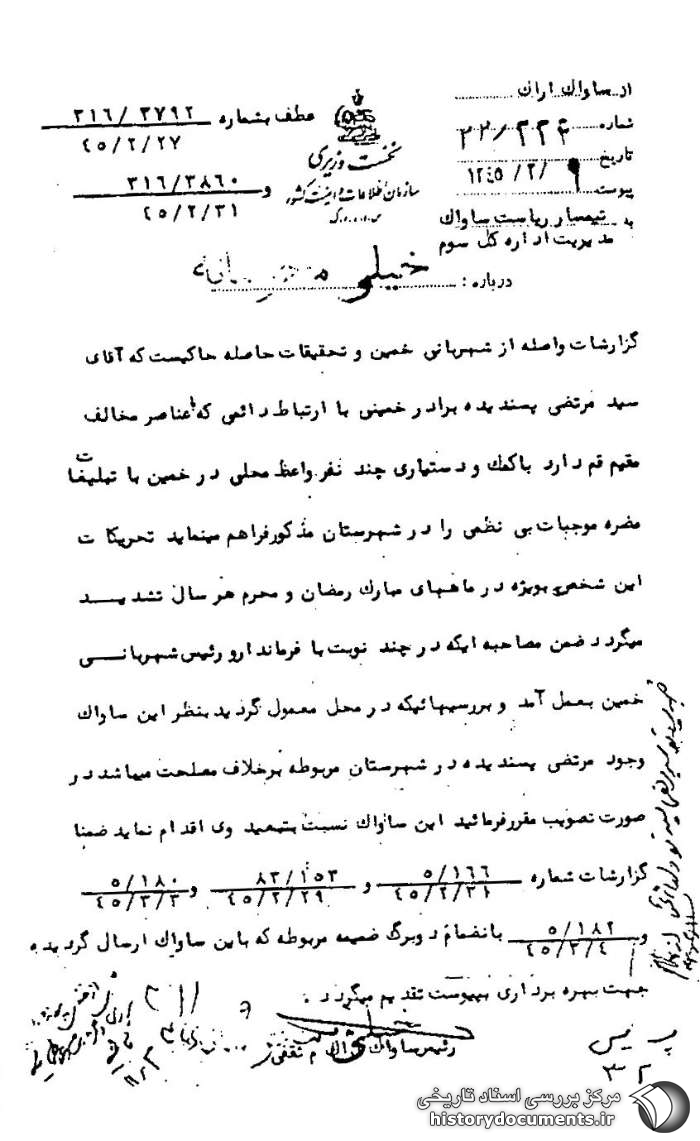 از ساواك اراك
شماره
تاریخ ۱۳۴۵/۳/۹
پیوست
به تیمسار ریاست ساواك
مدیریت اداره کل سوم
نخست وزیری
سازمان اطلاعات و امنیت کشور
س.ا.و.ا.ك
عطف بشماره ۳۱۶/۳۷۹۲
۴۵/۲/۲۷
و ۳۱۶/۳۸۶۰
۴۵/۲/۳۱
خیلی محرمانه
درباره :
گزارشات واصله از شهربانی خمین و تحقیقات حاصله حاکیست که آقای
سید مرتضی پسندیده برادر خمینی با ارتباط دائمی که با عناصر مخالف
مقیم قم دارد باکمك و دستیاری چند نفر واعظ محلی در خمین با تبلیغات
مضره موجبات بی نظمی را در شهرستان مذکور فراهم مینماید تحریکات
این شخص بویژه در ماههای مبارك رمضان و محرم هر سال تشدیـــد
میگردد ضمن مصاحبه ایکه در چند نوبت با فرماندار و رئیس شهربانــی
خمین بعمل آمد و بررسیهائیکه در محل معمول گردید بنظر این ساواك
وجود مرتضی پسندیده در شهرستان مربوطه برخلاف مصلحت میباشد در
صورت تصویب مقرر فرمائید این ساواك نسبت بتبعید وی اقدام نماید ضمنا
گزارشات شماره ۵/۱۶۶ و ۸۳/۱۵۳ و ۵/۱۸۰
۴۵/۲/۳۱ ۴۵/۲/۲۹ ۴۵/۳/۳
و ۵/۱۸۲ بانضمام دوبرگ ضمیمه مربوطه که باین ساواك ارسال گردیده
۴۵/۳/۴
جهت بهره برداری بپیوست تقدیم میگردد .
رئیس ساواك اراك م ثقفی
۳۲
مرکز بررسی اسناد تاریخی
historydocuments.ir